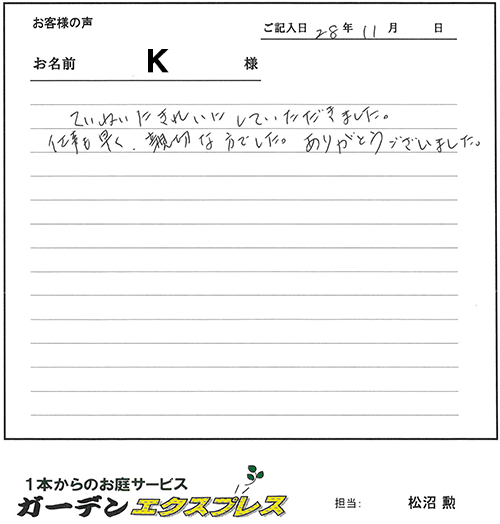 お客様の声
ご記入日 28年 11月 日
お名前 K 様
ていねいにきれいにしていただきました。
仕事も早く、親切な方でした。ありがとうございました。
1本からのお庭サービス
ガーデンエクスプレス
担当: 松沼 勲